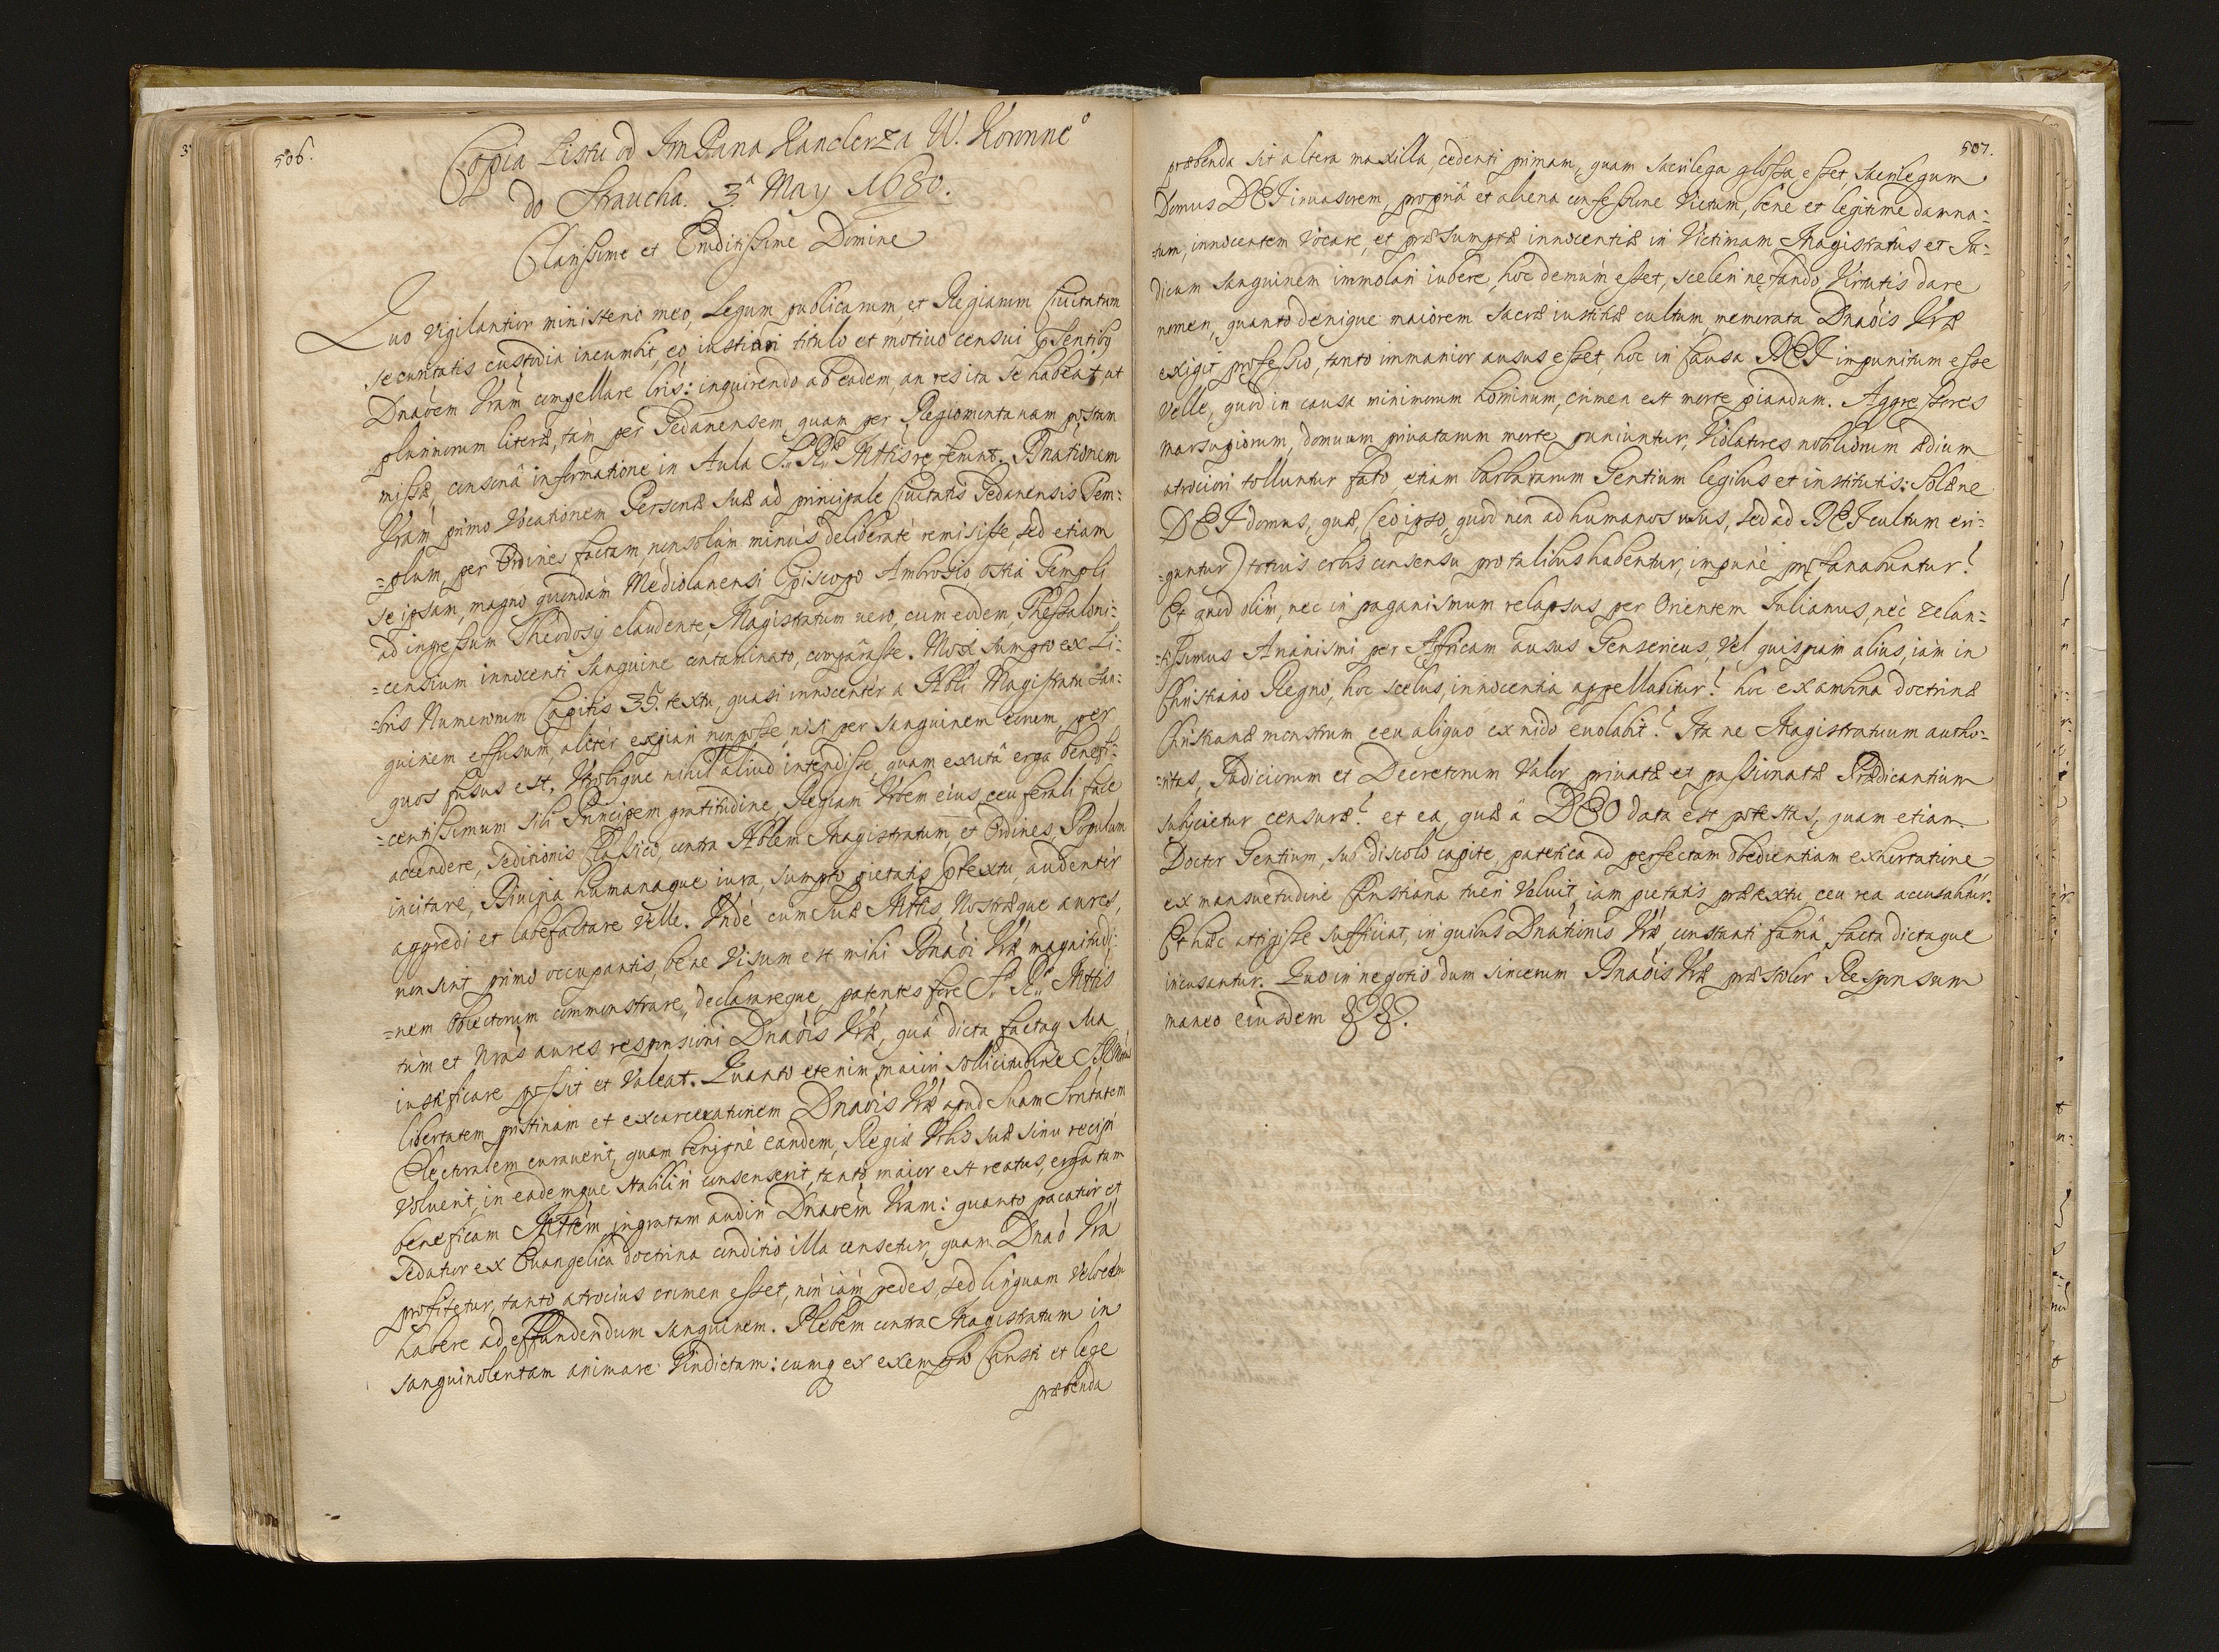 506.
Copia Listu od ImPana Kanclerza W. Koronne°
do Straucha. 3ª May 1680.
Clarissime et Eruditissime Domine
Quo vigilantior ministerio meo, Legum publicarum, et Regiarum Ciuitatum
securitatis custodia incumbit, eo iustiori titulo et motiuo censui pñsentibꝰ
Dnaõem Vrãm compellare lris: inquirendo ab eadem, an res ita se habeat, ut
plurimorum literæ, tàm per Gedanensem, quam per Regiomontanam postam
missæ, consonâ informatione in Aula S. R. Mttis referunt. Dnationem
Vrãm primo Vocationem Personæ suæ ad principale Ciuitatis Gedanensis Tem:
=plum, per Ordines factam, non solùm minus deliberatè remisisse, sed etiam
se ipsam, magno quondam Mediolanensi Episcopo Ambrosio ostia Templi
ad ingressum Theodosij claudente, Magistratum uero, cum eodem Thessaloni=
=censium innocenti sanguine contaminato, comparasse. Mox sumpto ex Li=
=bris Numerorum Capitis 35. textu, quasi innocentèr a Nbli Magistratu san=
guinem effusum, alitèr expiari non posse, nisi per sanguinem eorum, per
quos fusus est. Utrobique nihil aliud intendisse, quam exutâ erga benefi=
=centissimum sibi Principem gratitudine, Regiam Urbem eius, ceu ferali face
accendere, seditionis Classico, contra Nblem Magistratum, et Ordines Populum
incitare, Diuina humanaque iura, sumpto pietatis ptextu, audentèr
aggredi et labefactare velle. Undè cum suæ Mttis, Nostræque aures,
non sint primo occupantis, bene Visum est mihi Dnaõi Vræ magnitudi=
=nem obiectorum commonstrare, declarareque, patentes fore S. R. Mttis
tùm et Nras aures responsioni Dnaõis Vræ, quâ dicta factaq sua
iustificare possit et Valeat. Quanto etenim maiori sollicitudine S R Mttas
libertatem pristinam et excarcerationem Dnaõis Vræ apud Suam Sertatem
Electoralem curauerit, quam benignè eandem, Regiæ Urbis suæ sinu recipi
Voluerit, in eademque stabiliri consenserit, tanto maior est reatus, erga tam
beneficam Mttem ingratam audiri Dnaoem Vram: quanto pacatior et
sedatior ex Euangelica doctrina conditio illa censetur, quam Dnaõ Vra
profitetur, tanto atrocius crimen esset, non iàm pedes, sed linguam Velocem
habere ad effundendum sanguinem. Plebem contra Magistratum in
sanguinolentam animare Vindictam: cumq ex exemplo Christi et lege
præbenda
507.
præbenda sit altera maxilla, cedenti primam, quam sacrilega glossa esset, sacrilegum
Domus DEI inuasorem, propriâ et aliena confessione Victum, bene et legitime damna=
=tum, innocentem Vocare, et præsumptæ innocentiæ in Victimam Magistratûs et Ju=
dicum sanguinem immolari iubere, hoc demùm esset, sceleri nefando, Virtutis dare
nomen, quanto denique maiorem sacræ iustitiæ cultum, memorata Dnaõis Vræ
exigit professio, tanto immanior ausus esset, hoc in Causa DEI impunitum esse
Velle, quod in causa minimorum hominum, crimen est morte piandum. Aggressores
marsupiorum, domuum priuatarum morte puniuntur, Violatores nobiliorum ædium
atrociori tolluntur fato, etiam barbararum Gentium legibus et institutis: Solæne
DEI domus, quæ, (eo ipso, quod non ad humanos usus, sed ad DEI cultum eri=
=guntur) totius orbis consensu pro talibus habentur, impunè profanabuntur?
Et quod olim, nec in paganismum relapsus per Orientem Iulianus, nèc zelan=
=tissimus Arianismi per Africam ausus Gensericus, Vel quispiam alius, iàm in
Christiano Regno, hoc scelus, innocentia appellabitur? hoc examina doctrinæ
Christianæ monstrum ceu aliquo ex nido euolabit? Ita ne Magistratuum autho=
=ritas, Iudiciorum et Decretorum Valor, priuatæ et passionatæ Prædicantium
subijcietur censuræ? et ea, quæ â DEO data est potestas, quam etiam
Doctor Gentium, sub discolo capite, patetica ad perfectam obedientiam exhortatione
ex mansuetudine Christiana tueri Voluit, iam pietatis prætextu, ceu rea accusabitur.
Et hæc attigisse sufficiat, in quibus Dnationis Vræ, constanti famâ, facta dictaque
incusantur. Quo in negotio dum sincerum Dnaõis Vræ præstolor Responsum
maneo eiusdem &&.